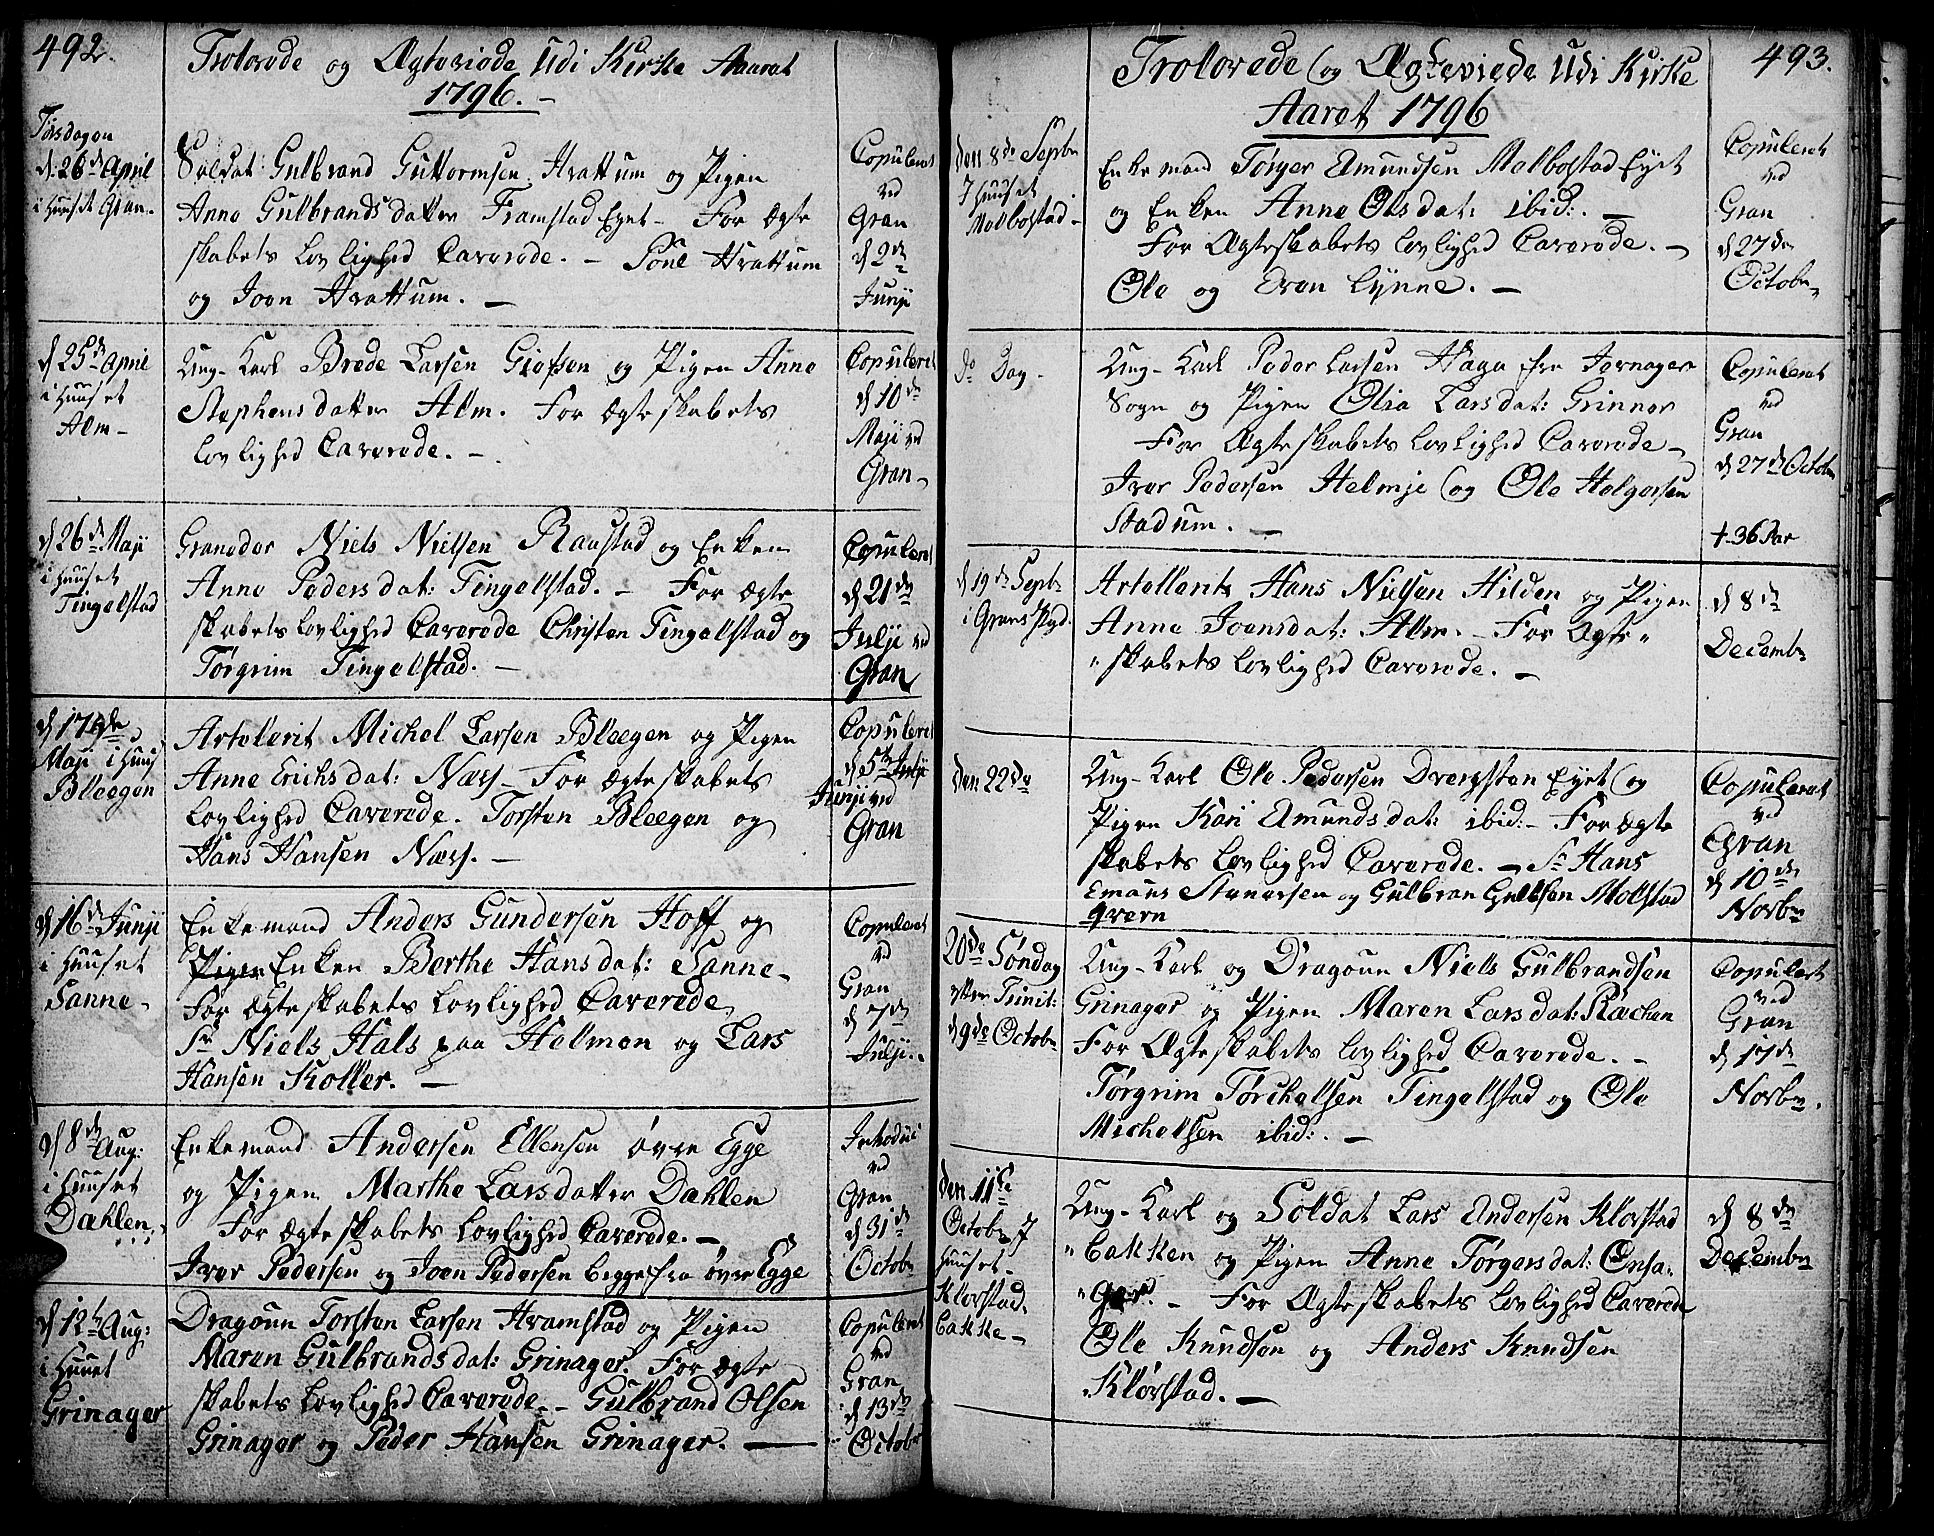 492.
Trolovede og Ægteviede Udi Kirke Aaret
1796. –
Tirsdagen
d. 26de April
i Huuset Gran.
Soldat: Gulbrand Guttormsen Hvattum og Pigen
Anne Gulbrandsdatter Framstad Eyet – For Ægte
skabets Lovlighed Caverede. – Poul Hvattum
og Joen Hvattum. –
Copuleret
ved
Gran
d 2de
Junji
d 25de April
i Huuset
Alm –
Ung-Karl Brede Larsen Giefsen og Pigen Anne
Stephensdatter Alm. For Ægteskabets
Lovlighed Caverede. –
Copuleret
d 10de
Maji ved
Gran –
d 26de Maji
i Huuset
Tingelstad
Granader Niels Nielsen Raustad og Enken
Anne Pedersdat: Tingelstad. – For Ægte
skabets Lovlighed Caverede Christen Tingelstad og
Tørgrim Tingelstad. –
Copuleret
d 21de
Julji ved
Gran
d 17de
Maji i Huus
Bleegen
Artolerit Michel Larsen Bleegen og Pigen
Anne Erichsdat: Næss – For Ægteskabets
Lovlighed Caverede. Torsten Bleegen og
Hans Hansen Næss. –
Copuleret
d 5te Julji
Junji ved
Gran
d 16de Junji
i Huuset
Sanne –
Enkemand Anders Gundersen Hoff og
Pigen Enken Berthe Hansdat: Sanne –
For Ægteskabets Lovlighed Caverede
Sr Niels Hals paa Helmen og Lars
Hansen Koller. –
Copuleret
ved
Gran
d 7de
Julji. –
d 8de Aug:
i Huuset
Dæhlen
Enkemand Andersen Ellensen øvre Egge
og Pigen Marthe Larsdatter Dæhlen
For Ægteskabets Lovlighed Caverede. –
Iver Pedersen og Joen Pedersen begge fra øvre Egge
Introduc:
ved
Gran
d 31te
Octobr
d 12te Aug:
i Huuset
Grinager
Dragoun Torsten Larsen Hvamstad og Pigen
Maren Gulbrandsdat: Grinager. For Ægte
skabets Lovlighed Caverede. – Gulbrand Olsen
Grinager og Peder Hansen Grinager. –
Copuleret
ved
Gran
d 13de
Octobr
493.
Trolovede og Ægteviede Udi Kirke
Aaret 1796
den 8de Septbr
I Huuset
Molbostad –
Enkemand Tørger Amundsen Molbostad Eyet
og Enken Anne Olsdat: ibid:. –
For Ægteskabets Lovlighed Caverede. –
Ole og Even Lynne. –
Copuleret
ved
Gran
d 27de
Octobr
do Dag –
Ung-Karl Peder Larsen Haga fra Jevnager
Sogn og Pigen Olia Larsdat: Grinner
For Ægteskabets Lovlighed Caverede –
Iver Pedersen Helmje og Ole Helgersen
Stadum. –
Copuleret
ved
Gran
d 27de Octobr
+ 36 Par
d 19de Septbr
i Grans Skyd.
Artollerits Hans Nielsen Hilden og Pigen
Anne Joensdat: Alm. – For Ægte
skabets Lovlighed Caverede. –
d 8de
Decembr
den 22de
Ung-Karl Ole Pedersen Dvergsten Eyet og
Pigen Kari Amundsdat: ibid: – For Ægte
skabets Lovlighed Caverede. – Sr Hans
Emaus Stenersen og Gulbran Gulbsen Molstad
qvern
Copuleret
ved
Gran
d 10de
Novbr
20de Søndag
efter Trinit:
d 9de Octobr
Ung-Karl og Dragoun Niels Gulbrandsen
Grinager og Pigen Maren Larsdat: Ræcken
For Ægteskabets Lovlighed Caverede. –
Tørgrim Tørckelsen Tingelstad og Ole
Michelsen ibid:. –
Copuleret
ved
Gran
d 17de
Novbr.
den 11te
Octobr I
Huuset –
Klovstad
bakke –
Ung-Karl og Soldat Lars Andersen Klovstad
bakken og Pigen Anne Tørgersdat: Onsa-
ger. – For Ægteskabets Lovlighed Caverede
Ole Knudsen og Anders Knudsen
Klovstad. –
d 8de
Decembr